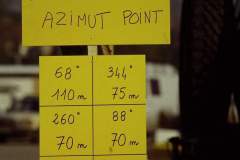 AZIMUT POINT
68° 344°
110 m 75 m
260° 88°
70 m 70 m